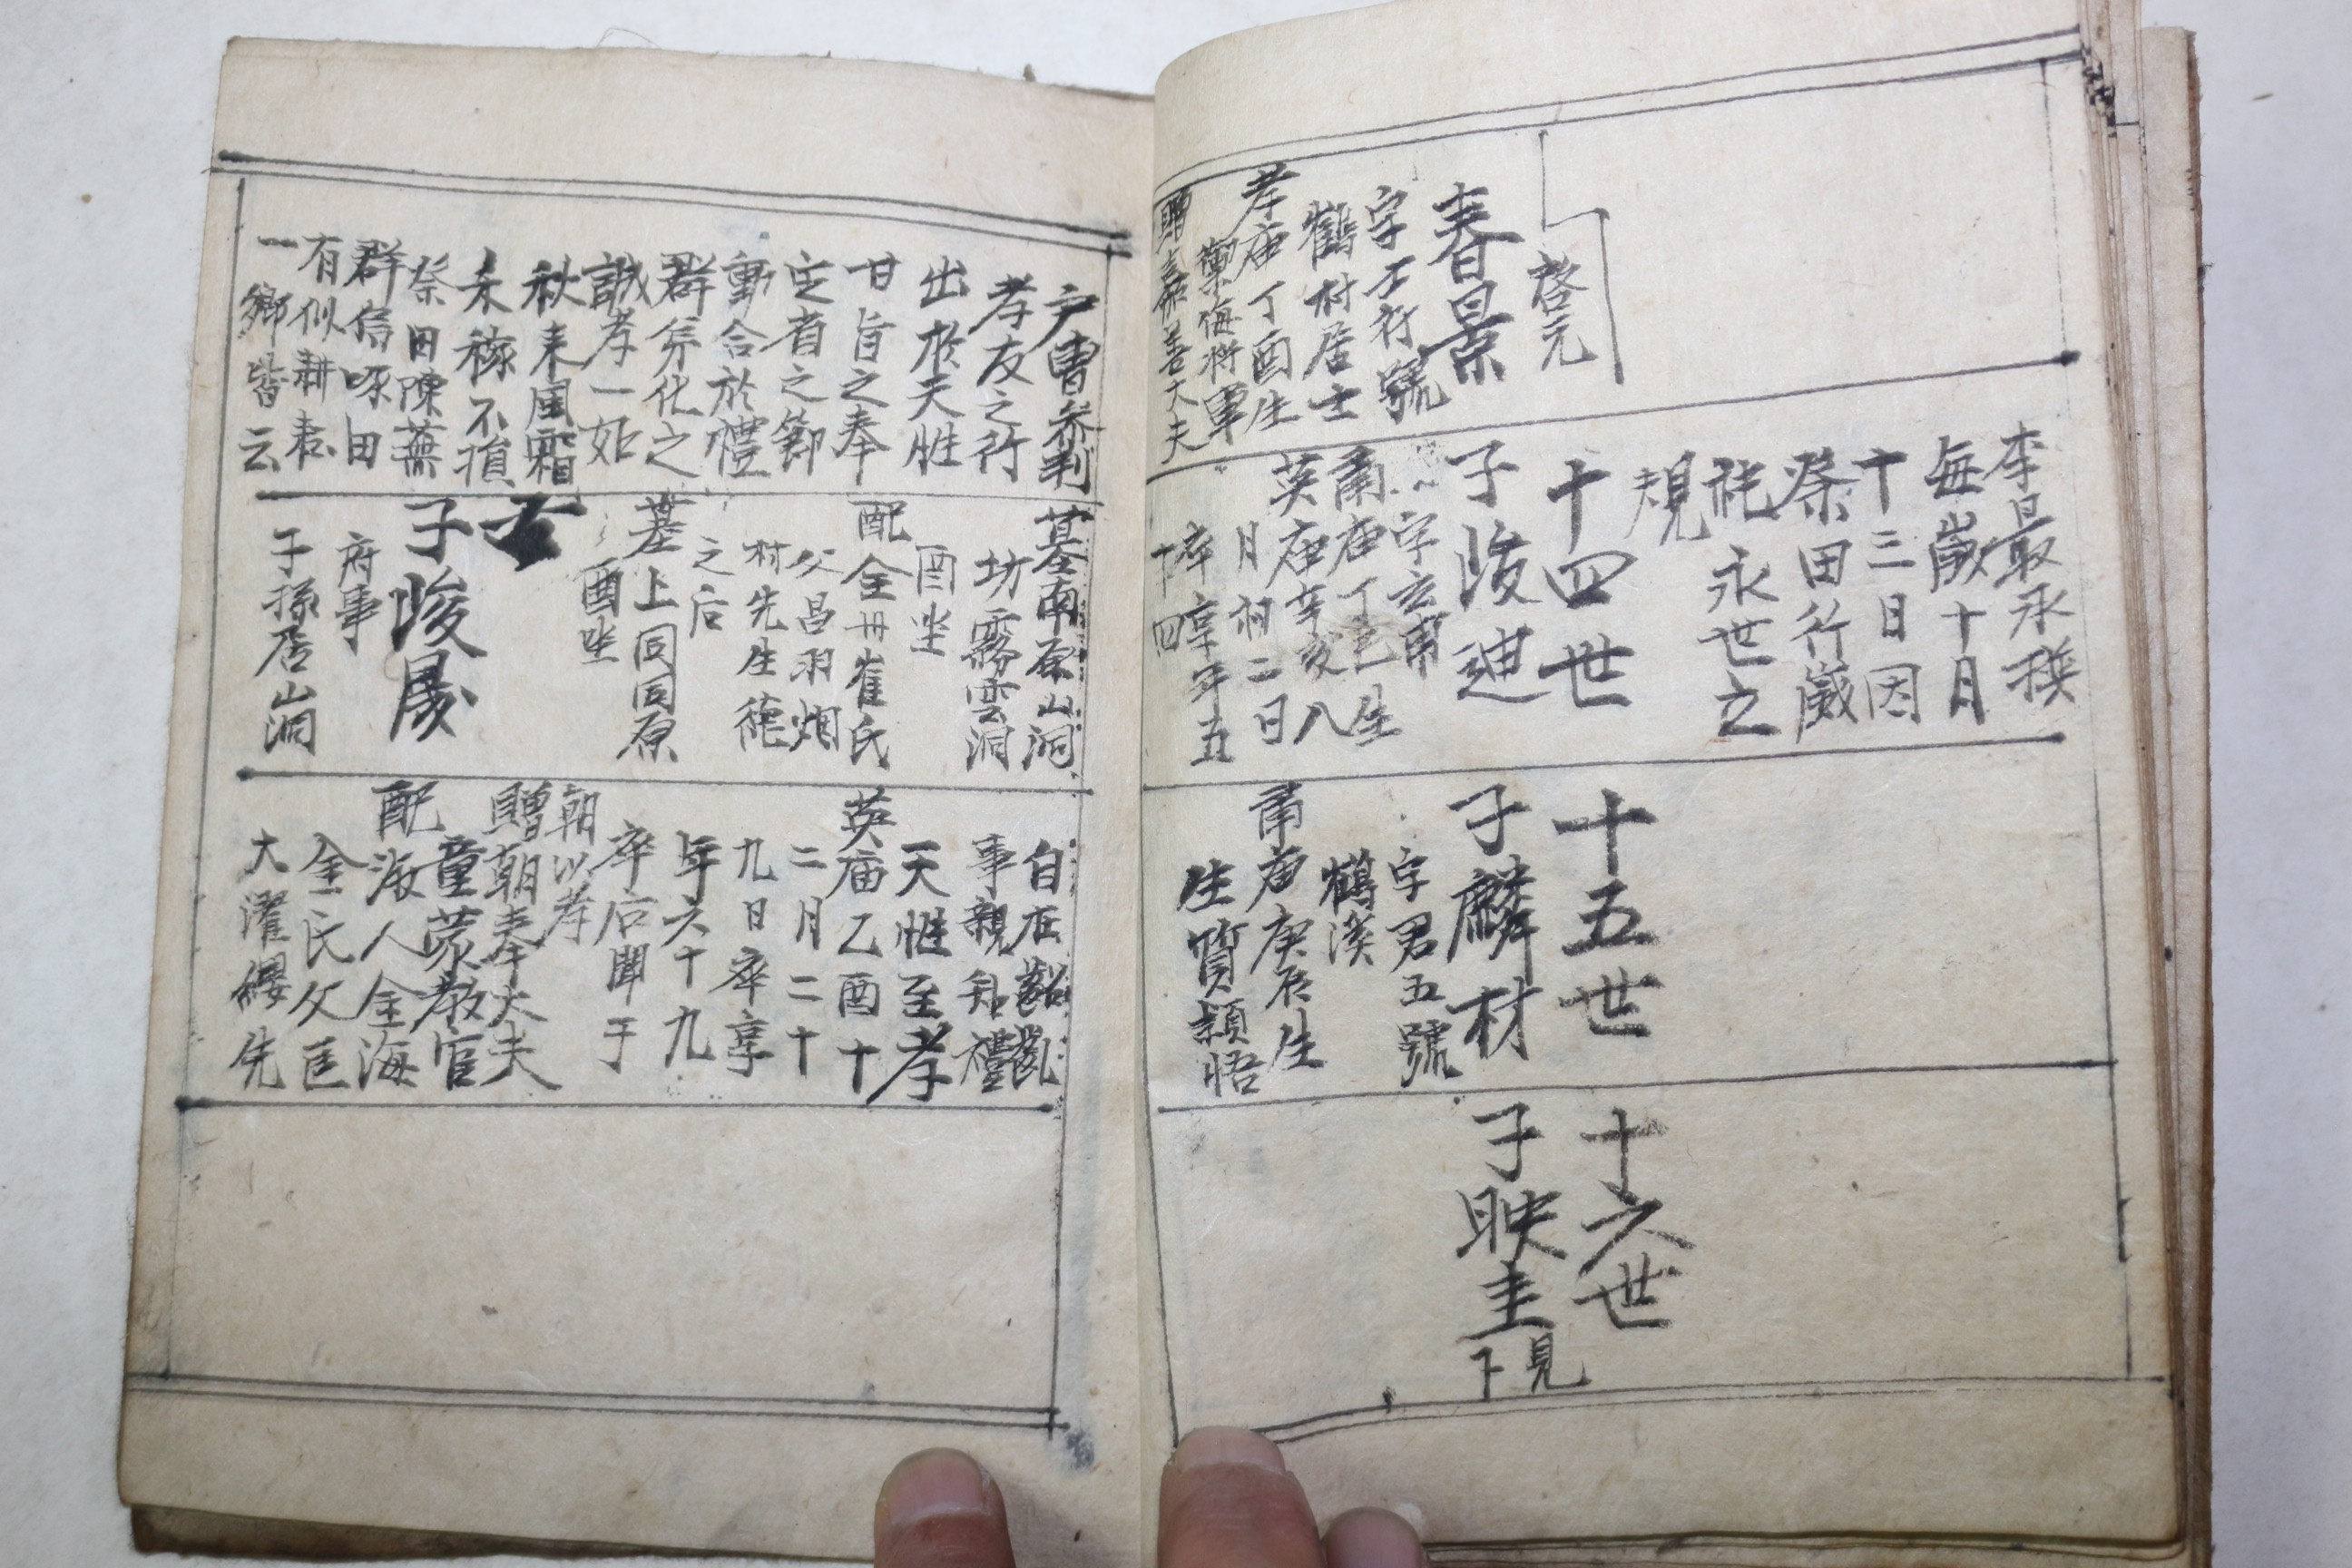 啓元
春景
字石行號
鶴村居士
孝庙丁酉生
禦侮將軍
贈嘉善大夫
李最承模
每歲十月
十三日因
祭田行歲
祀永世之
規
十四世
子浚廸
字云甫
肅庙丁巳生
英庙辛亥八
月初二日
卒享年五
十四
十五世
子麟材
字君五號
鶴溪
肅庙庚辰生
生質穎悟
十六世
子映圭
下見
戶曹參判
孝友之行
出於天性
甘旨之奉
定省之節
動合於禮
群弟化之
誠孝一如
秋來風霜
禾稼不損
祭田陳蕪
群烏啄田
有似耕耘
一鄉皆云
墓南原山洞
坊霧雲洞
酉坐
配全州崔氏
父昌羽烟
村先生德
之后
墓上同同原
酉坐
子浚晟
府事
子孫居山洞
自在齠齔
事親知禮
天性至孝
英庙乙酉十
二月二十
九日卒享
年六十九
卒后聞于
朝以孝
贈朝奉大夫
童蒙教官
配海人金海
金氏父匡
大濯纓先